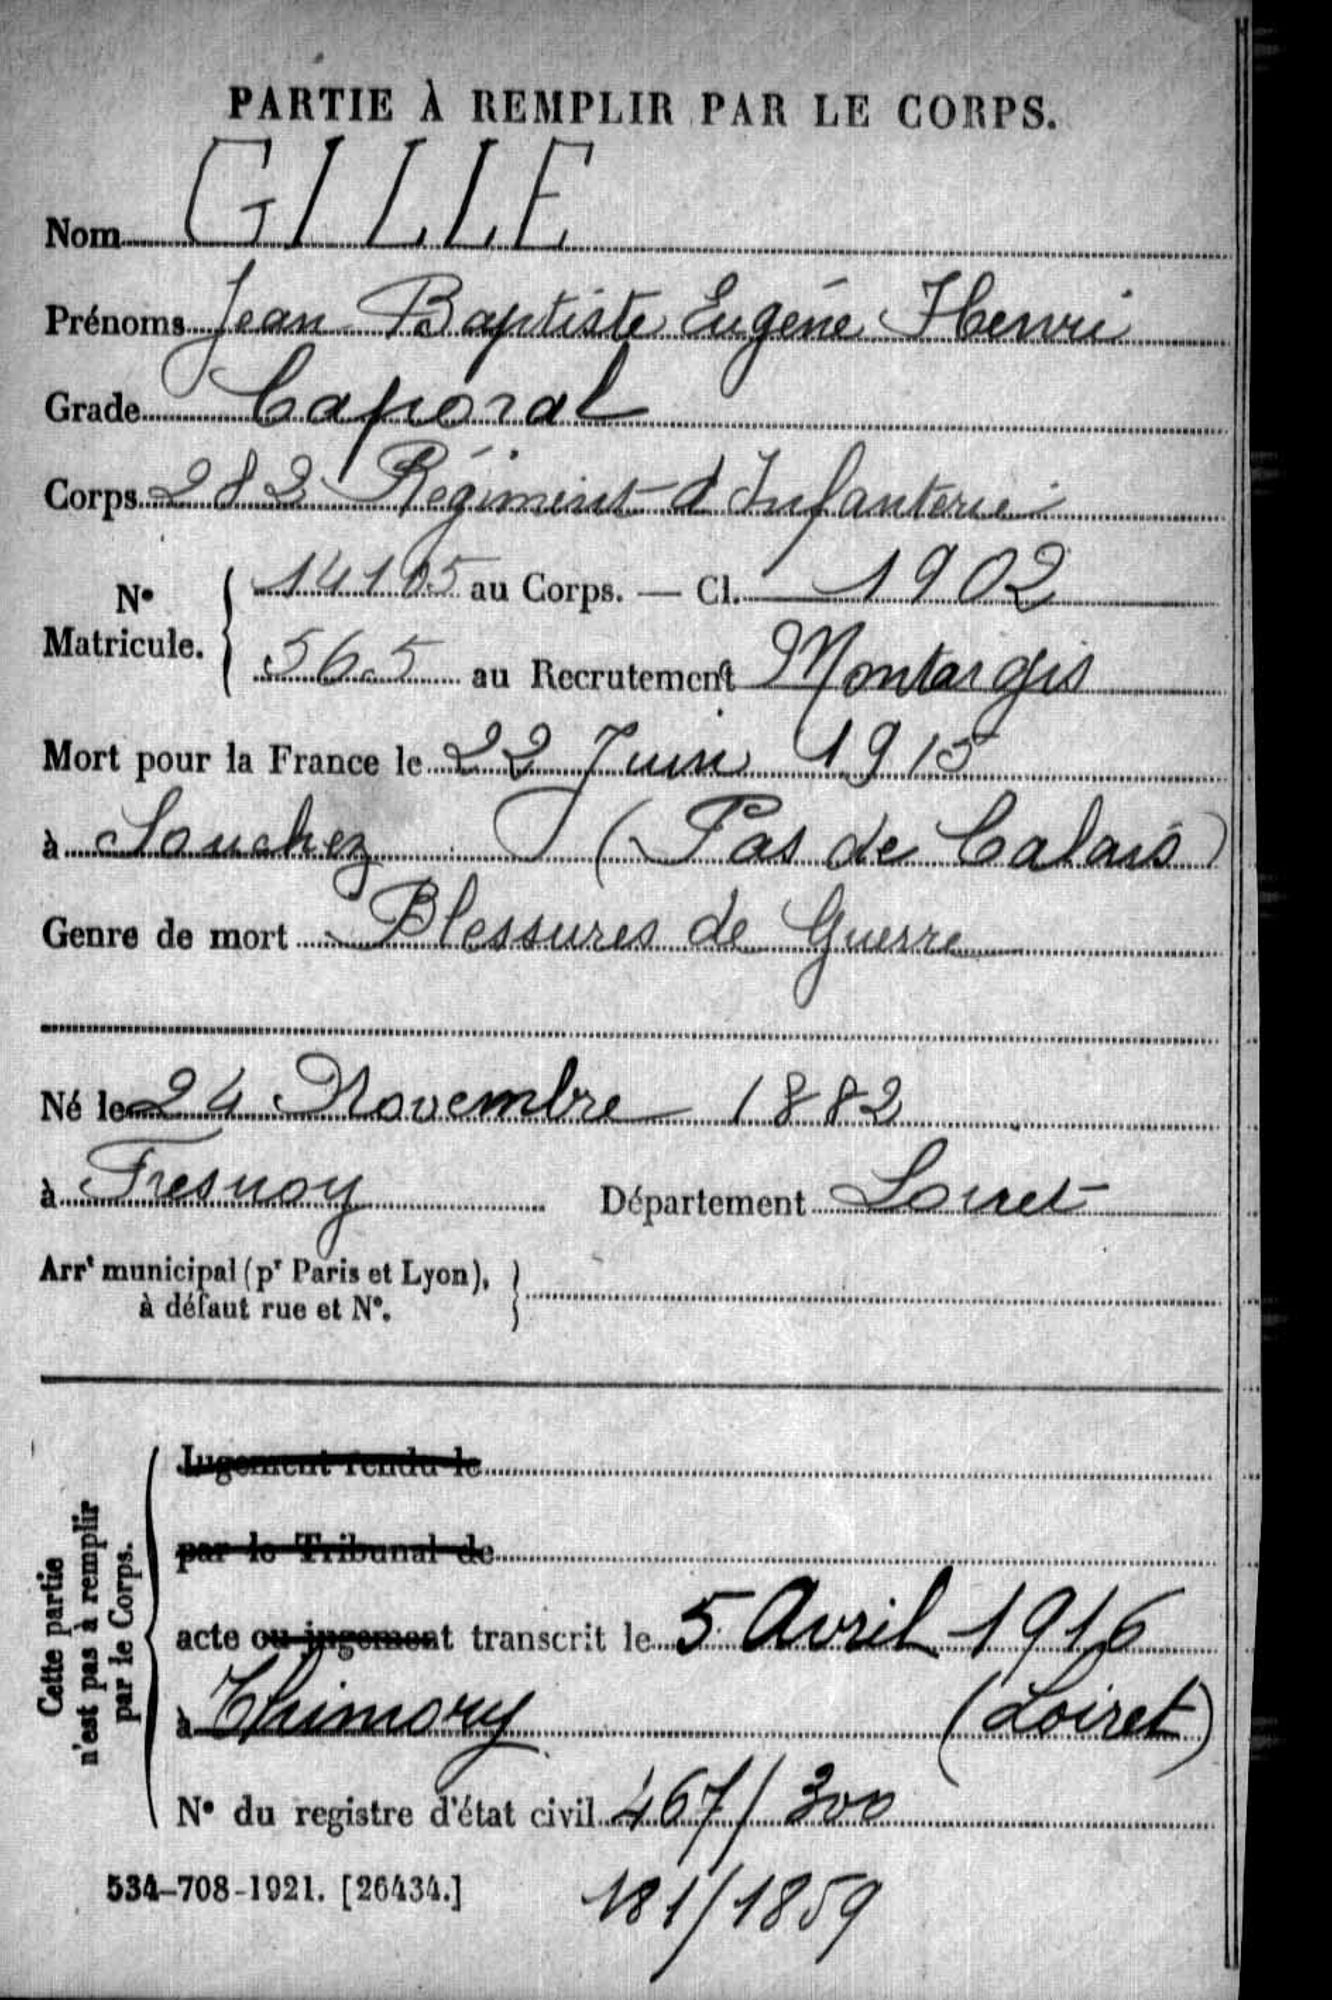 PARTIE À REMPLIR PAR LE CORPS.
Nom GILLE
Prénoms Jean Baptiste Eugène Henri
Grade Caporal
Corps 282 Régiment d'Infanterie
N° Matricule. 14105 au Corps. — Cl. 1902
565 au Recrutement Montargis
Mort pour la France le 22 Juin 1915
à Souchez (Pas de Calais)
Genre de mort Blessures de Guerre
Né le 24 Novembre 1882
à Fresnoy Département Loiret
Arrt municipal (pr Paris et Lyon),
à défaut rue et N°.
Cette partie
n'est pas à remplir
par le Corps.
Jugement rendu le
par le Tribunal de
acte ou jugement transcrit le 5 Avril 1916
à Thimory (Loiret)
N° du registre d'état civil 467/300
534-708-1921. [26434.]
181/1859